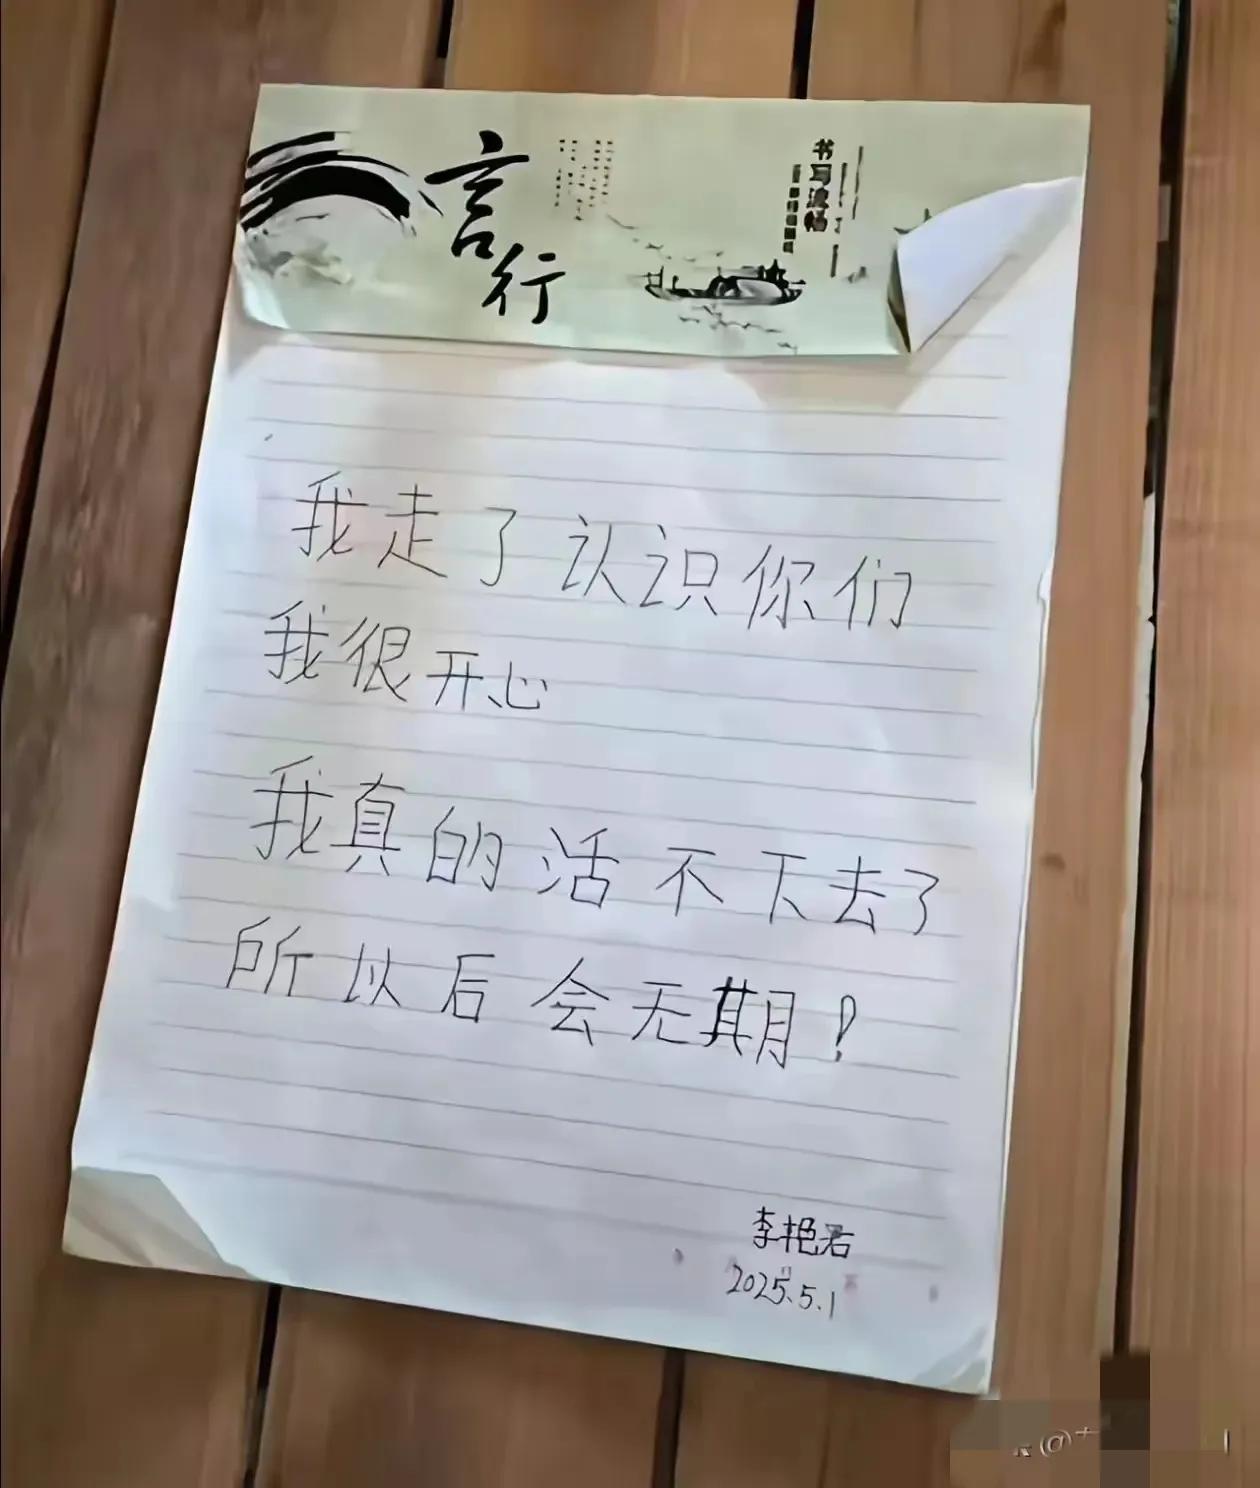 言行
书写流畅
我走了认识你们
我很开心
我真的活不下去了
所以后会无期！
李艳君
2025.5.1